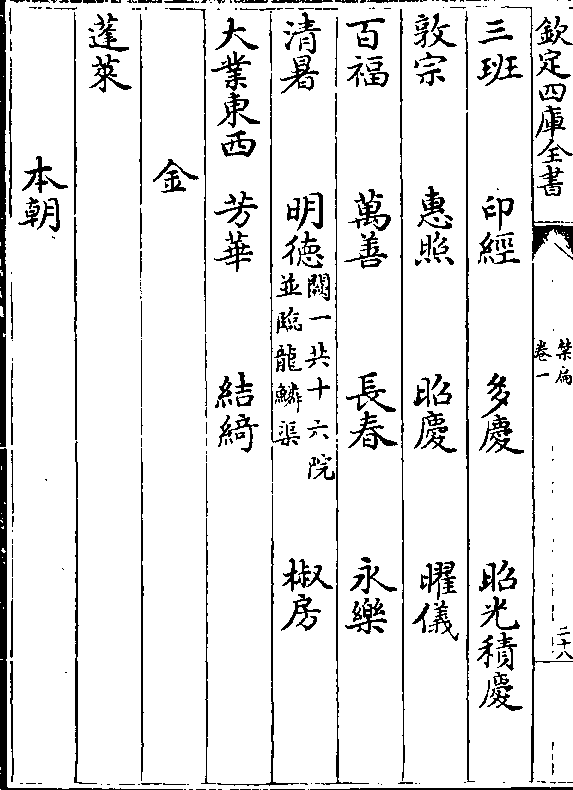 欽定四庫全書
禁扁
卷一
二十八
三班 印經 多慶 昭光積慶
敦宗 惠照 昭慶 曜儀
百福 萬善 長春 永樂
清暑 明德 闕一共十六院 並臨龍鱗渠 椒房
大業東西 芳華 結綺
金
蓬萊
本朝